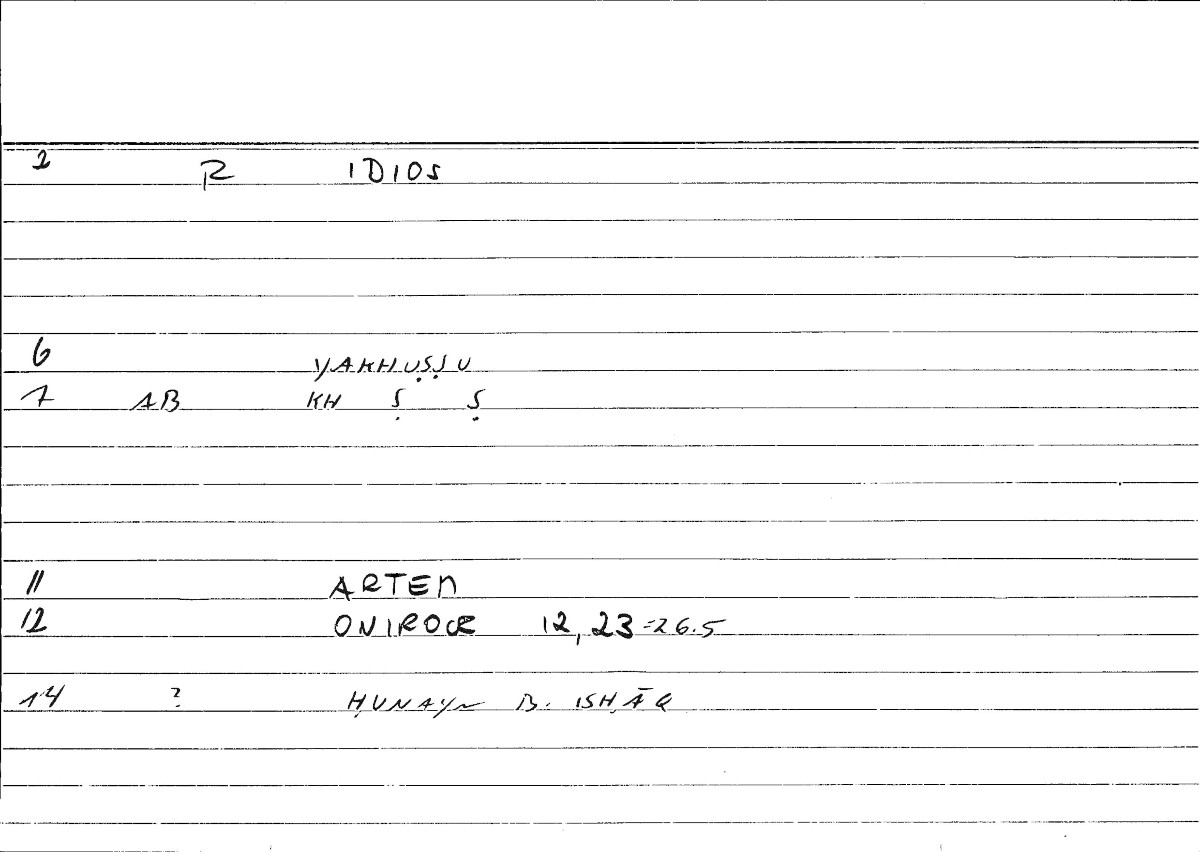 2 R IDIOS
6 YAKHUṢṢU
7 AB KH Ṣ Ṣ
11 ARTEM
12 ONIROCR 12,23=26.5
14 ? ḤUNAYN B. ISḤĀQ